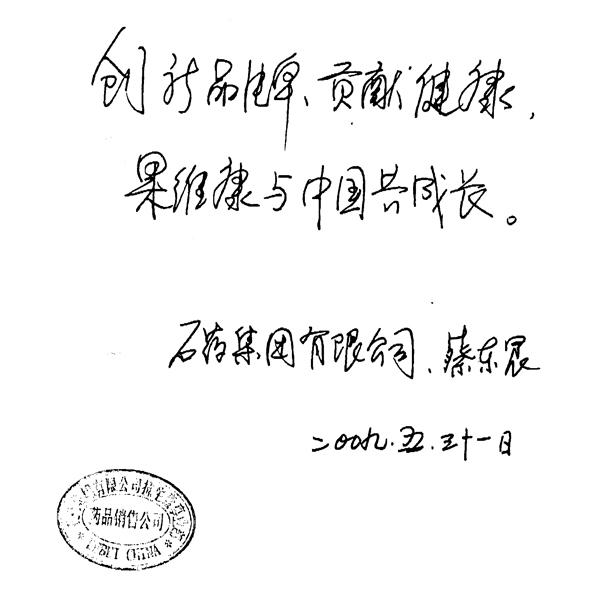 创新品牌、贡献健康，
果维康与中国共成长。
石药集团有限公司、蔡东晨
二00九.五.三十一日
有限公司
药品销售公司